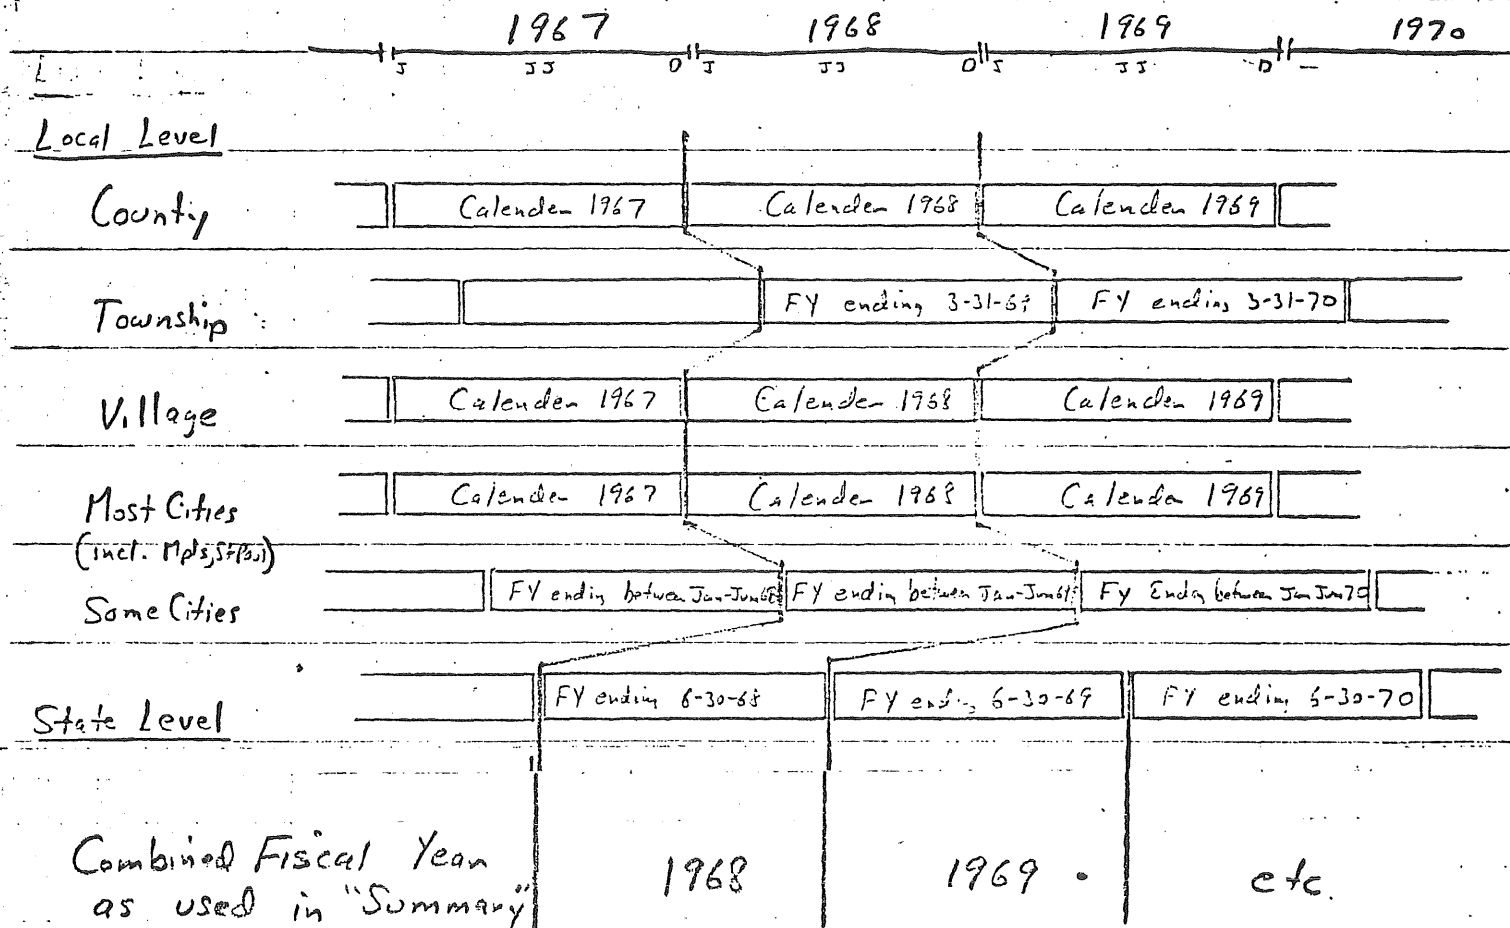 1967 1968 1969 1970
J JJ D J JJ D J JJ D
Local Level
County Calender 1967 Calender 1968 Calender 1969
Township FY ending 3-31-69 FY ending 3-31-70
Village Calender 1967 Calender 1968 Calender 1969
Most Cities Calender 1967 Calender 1968 Calender 1969
(incl. Mpls, St Paul)
Some Cities FY ending between Jan-Jun 68 FY ending between Jan-Jun 69 FY Ending between Jan Jun 70
State Level FY ending 6-30-68 FY ending 6-30-69 FY ending 6-30-70
Combined Fiscal Year
as used in "Summary" 1968 1969 etc.